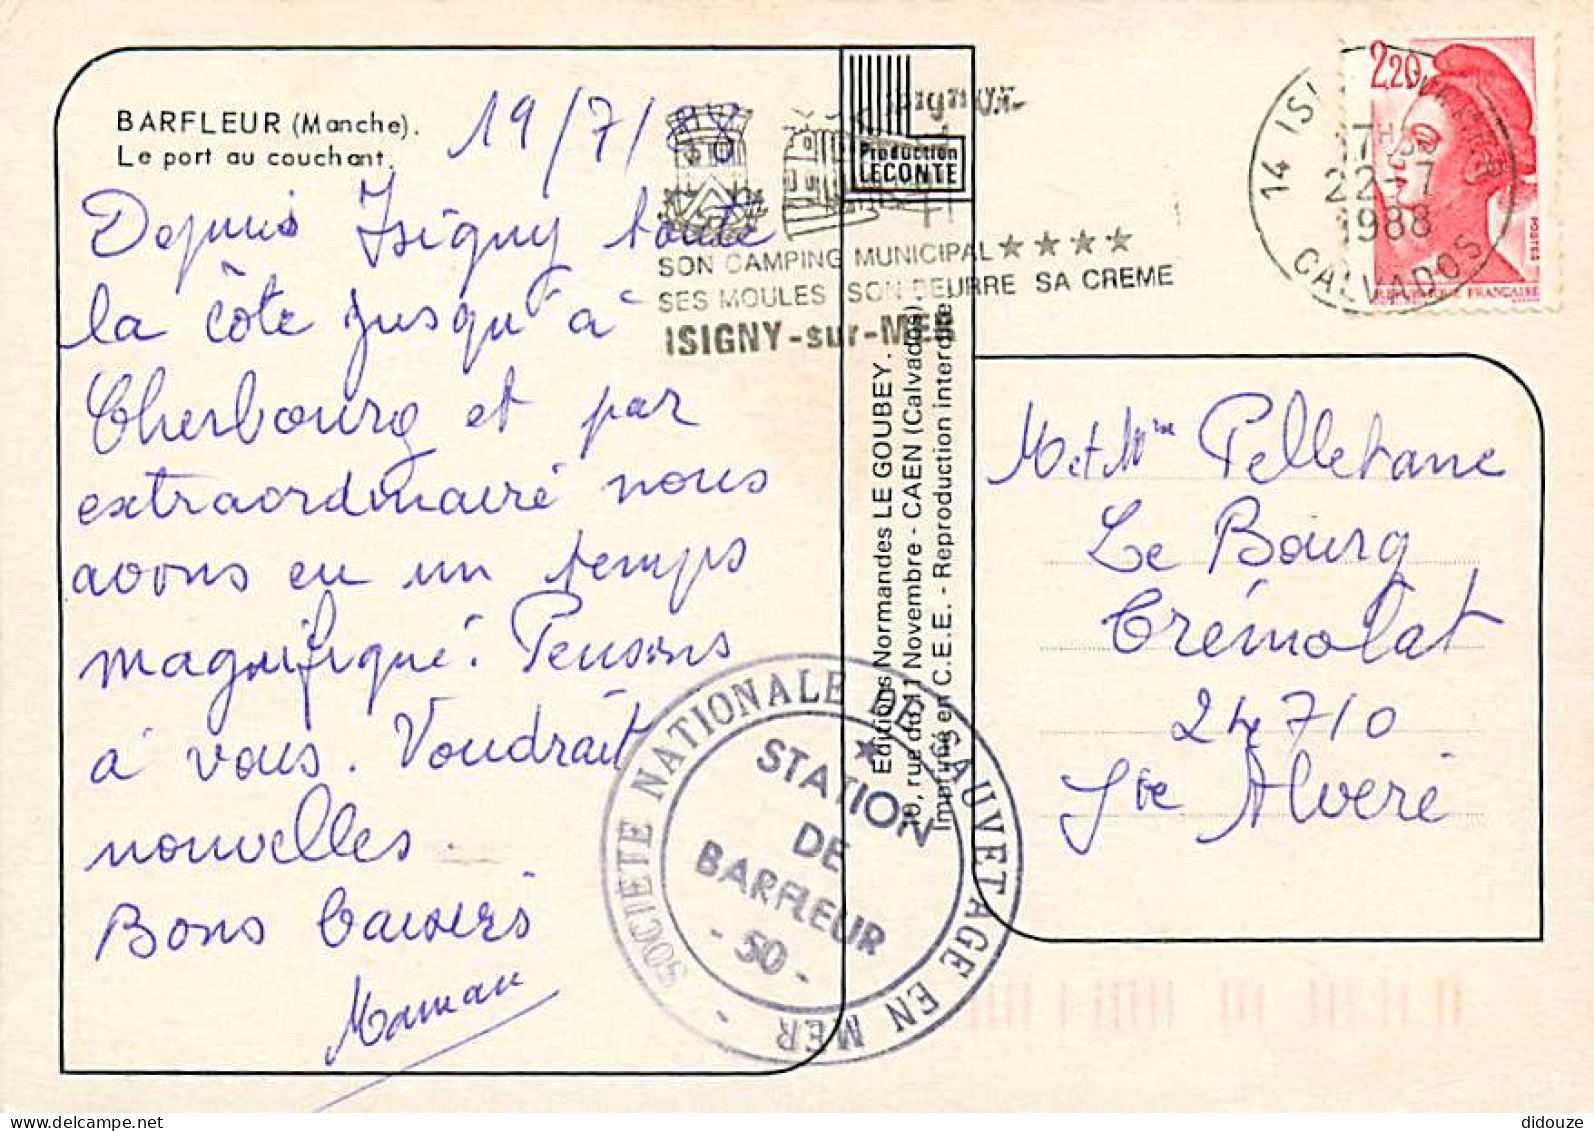 BARFLEUR (Manche).
Le port au couchant.
19/7/88
Depuis Isigny toute
la côte jusqu'à
Cherbourg et par
extraordinaire nous
avons eu un temps
magnifique. Pensons
à vous. Voudrait
nouvelles.
Bons baisers
Maman
SON CAMPING MUNICIPAL ★★★★
SES MOULES SON BEURRE SA CREME
ISIGNY-sur-MER
Production
LECONTE
Editions Normandes LE GOUBEY.
10, rue du 11 Novembre - CAEN (Calvados).
Imprimé en C.E.E. - Reproduction interdite
SOCIÉTÉ NATIONALE DE SAUVETAGE EN MER
STATION
DE
BARFLEUR
- 50 -
2,20
POSTES
REPUBLIQUE FRANÇAISE
14
22-7
1988
CALVADOS
M et Mme Pelletane
Le Bourg
Trémolat
24710
Ste Alvère
didouze